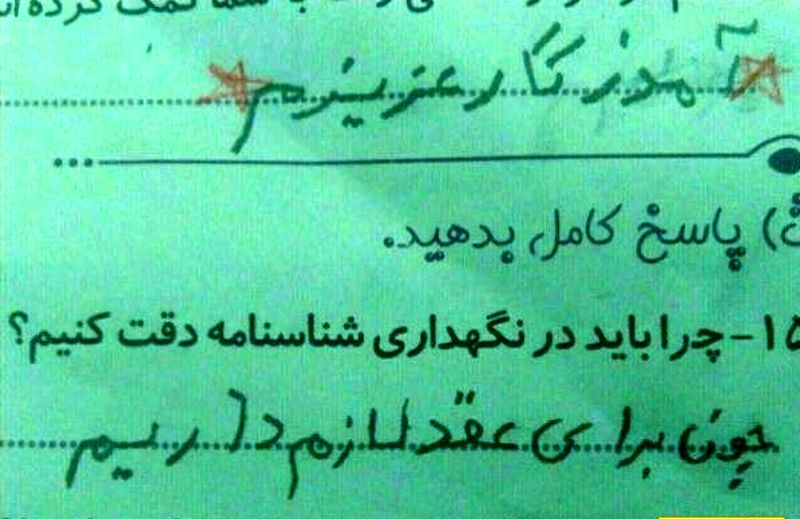 با شما کمک کرده‌اند
آموزگار عزیزم
ث) پاسخ کامل بدهید.
۱۵- چرا باید در نگهداری شناسنامه دقت کنیم؟
چون برای عقد لازم داریم